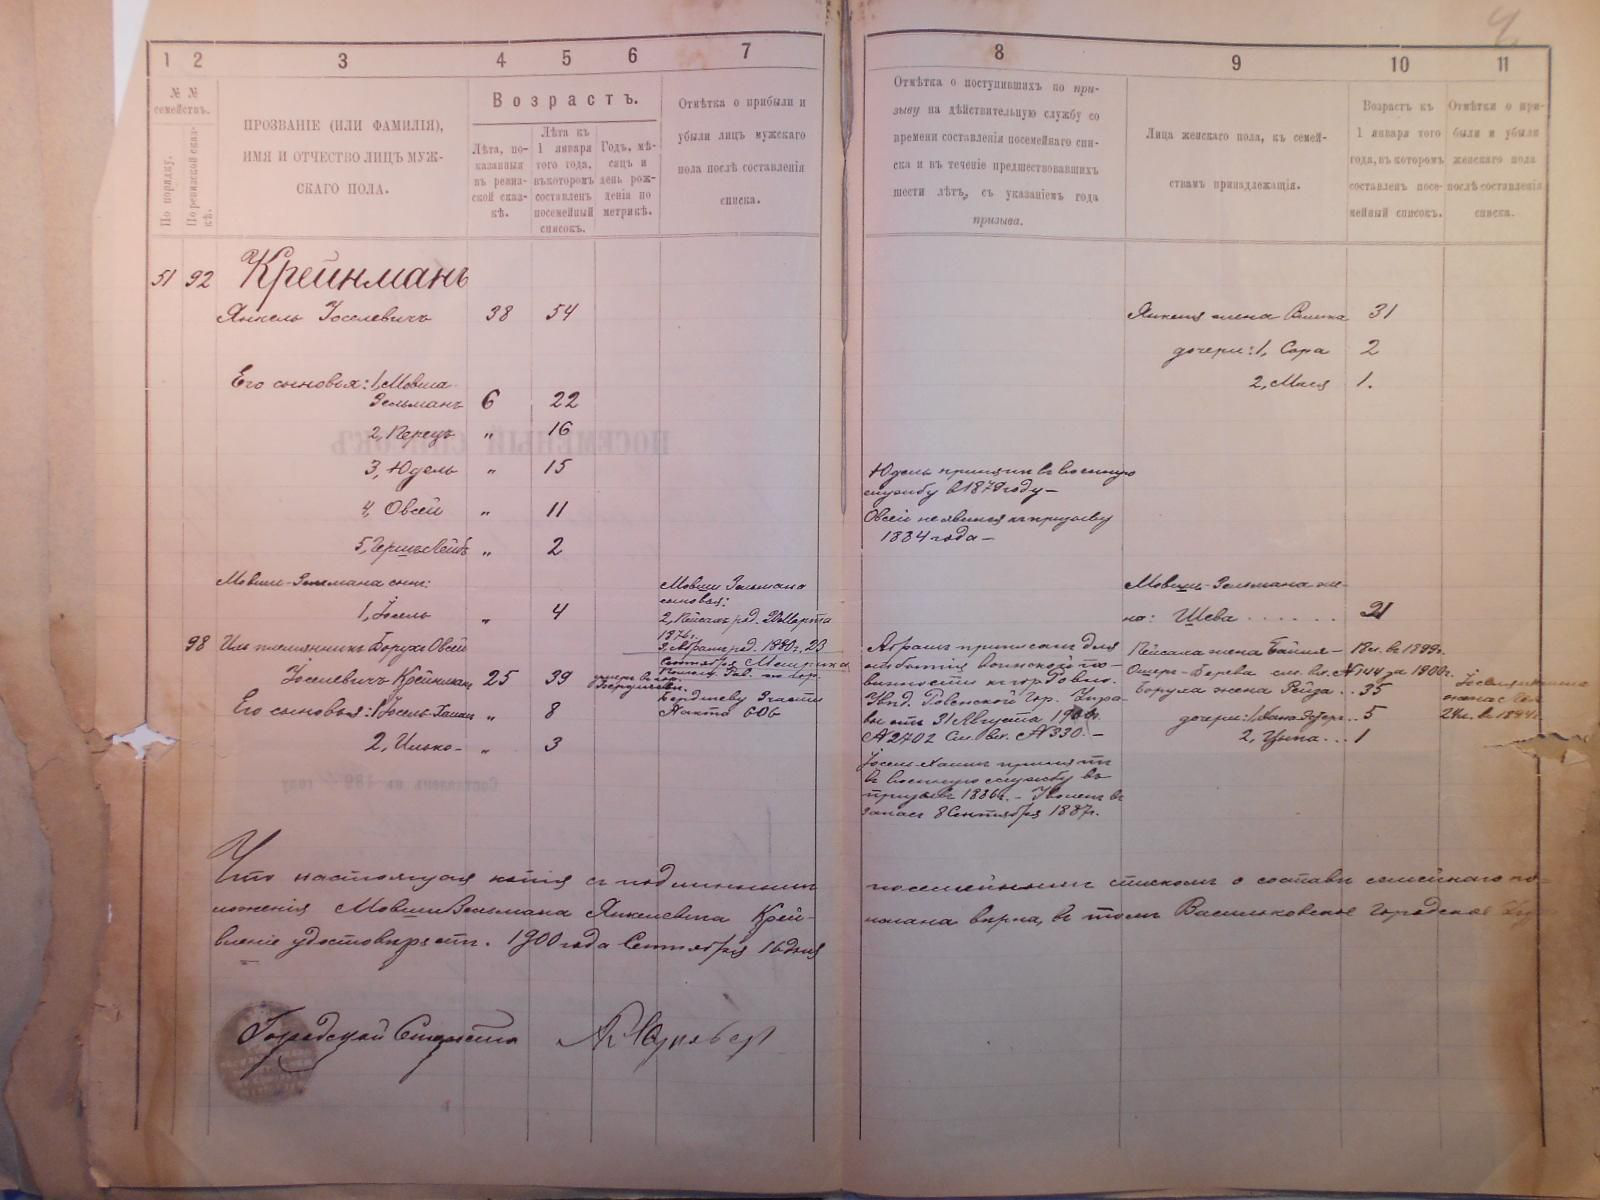 1 2 3 4 5 6 7 8 9 10 11
№ № семействъ.
По порядку.
По ревизской сказкѣ.
ПРОЗВАНІЕ (ИЛИ ФАМИЛІЯ),
ИМЯ И ОТЧЕСТВО ЛИЦЪ МУЖ-
СКАГО ПОЛА.
Возрастъ.
Лѣта, по-
казанныя
въ ревиз-
ской сказ-
кѣ.
Лѣта къ
1 января
того года,
въ которомъ
составленъ
посемейный
списокъ.
Годъ, мѣ-
сяцъ и
день рож-
денія по
метрикѣ.
Отмѣтка о прибыли и
убыли лицъ мужскаго
пола послѣ составленія
списка.
Отмѣтка о поступившихъ по при-
зыву на дѣйствительную службу со
времени составленія посемейнаго спи-
ска и въ теченіе предшествовавшихъ
шести лѣтъ, съ указаніемъ года
призыва.
Лица женскаго пола, къ семей-
ствамъ принадлежащія.
Возрастъ къ
1 января того
года, въ которомъ
составленъ посе-
мейный списокъ.
Отмѣтки о при-
были и убыли
женскаго пола
послѣ составленія
списка.
51 92 Крейнманъ
Янкель Іоселевичъ 38 54
Янкеля жена 31
дочери: 1, Сора 2
Его сыновья: 1, Мовша
Зельманъ 6 22
2, Мася 1.
2, Перецъ „ 16
3, Юдель „ 15
Юдель принятъ въ военную
службу въ 1879 году —
4, Овсей „ 11
Овсей не явился къ призыву
1884 года —
5, Гершъ Лейбъ „ 2
Мовши-Зельмана сынъ:
1, Іосель „ 4
Мовши Зельмана
сыновья:
2, Пейсахъ род. 20 Марта
1876 г.
3, Абрамъ род. 1880 г. 23
Сентября
Бердичеву
606
Мовши-Зельмана же-
на: Шева . . . . . . . 21
98 Ихъ племянникъ Борухъ Овсей
Іоселевичъ Крейнманъ 25 39
Его сыновья: 1, Іосель-Хаимъ „ 8
2, Илько — „ 3
Абрамъ приписанъ для
отбытія воинской по-
винности къ гор. Ровно.
Увѣд. Ровенской Гор. Упра-
вы отъ 31 Августа 1900 г.
№ 2702 См. вх. № 330. —
Іосель-Хаимъ принятъ
въ военную службу въ
призывъ 1886 г. — Уволенъ въ
запасъ 8 Сентября 1887 г.
Пейсаха жена 18 л. въ 1899 г.
см. вх. № 144 за 1900 г.
Боруха жена Рейза . . 35
дочери: 1, Хана-Эстеръ . . 5
2, Ципа . . . 1
жена
24 л. въ 1894 г.
Что настоящая копія съ подлиннымъ посемейнымъ спискомъ о составѣ семейнаго по-
ложенія Мовши Зельмана Янкелевича Крей- нмана вѣрна, въ томъ Васильковское Городское Упра-
вленіе удостовѣряетъ. 1900 года Сентября 16 дня
Городской Староста